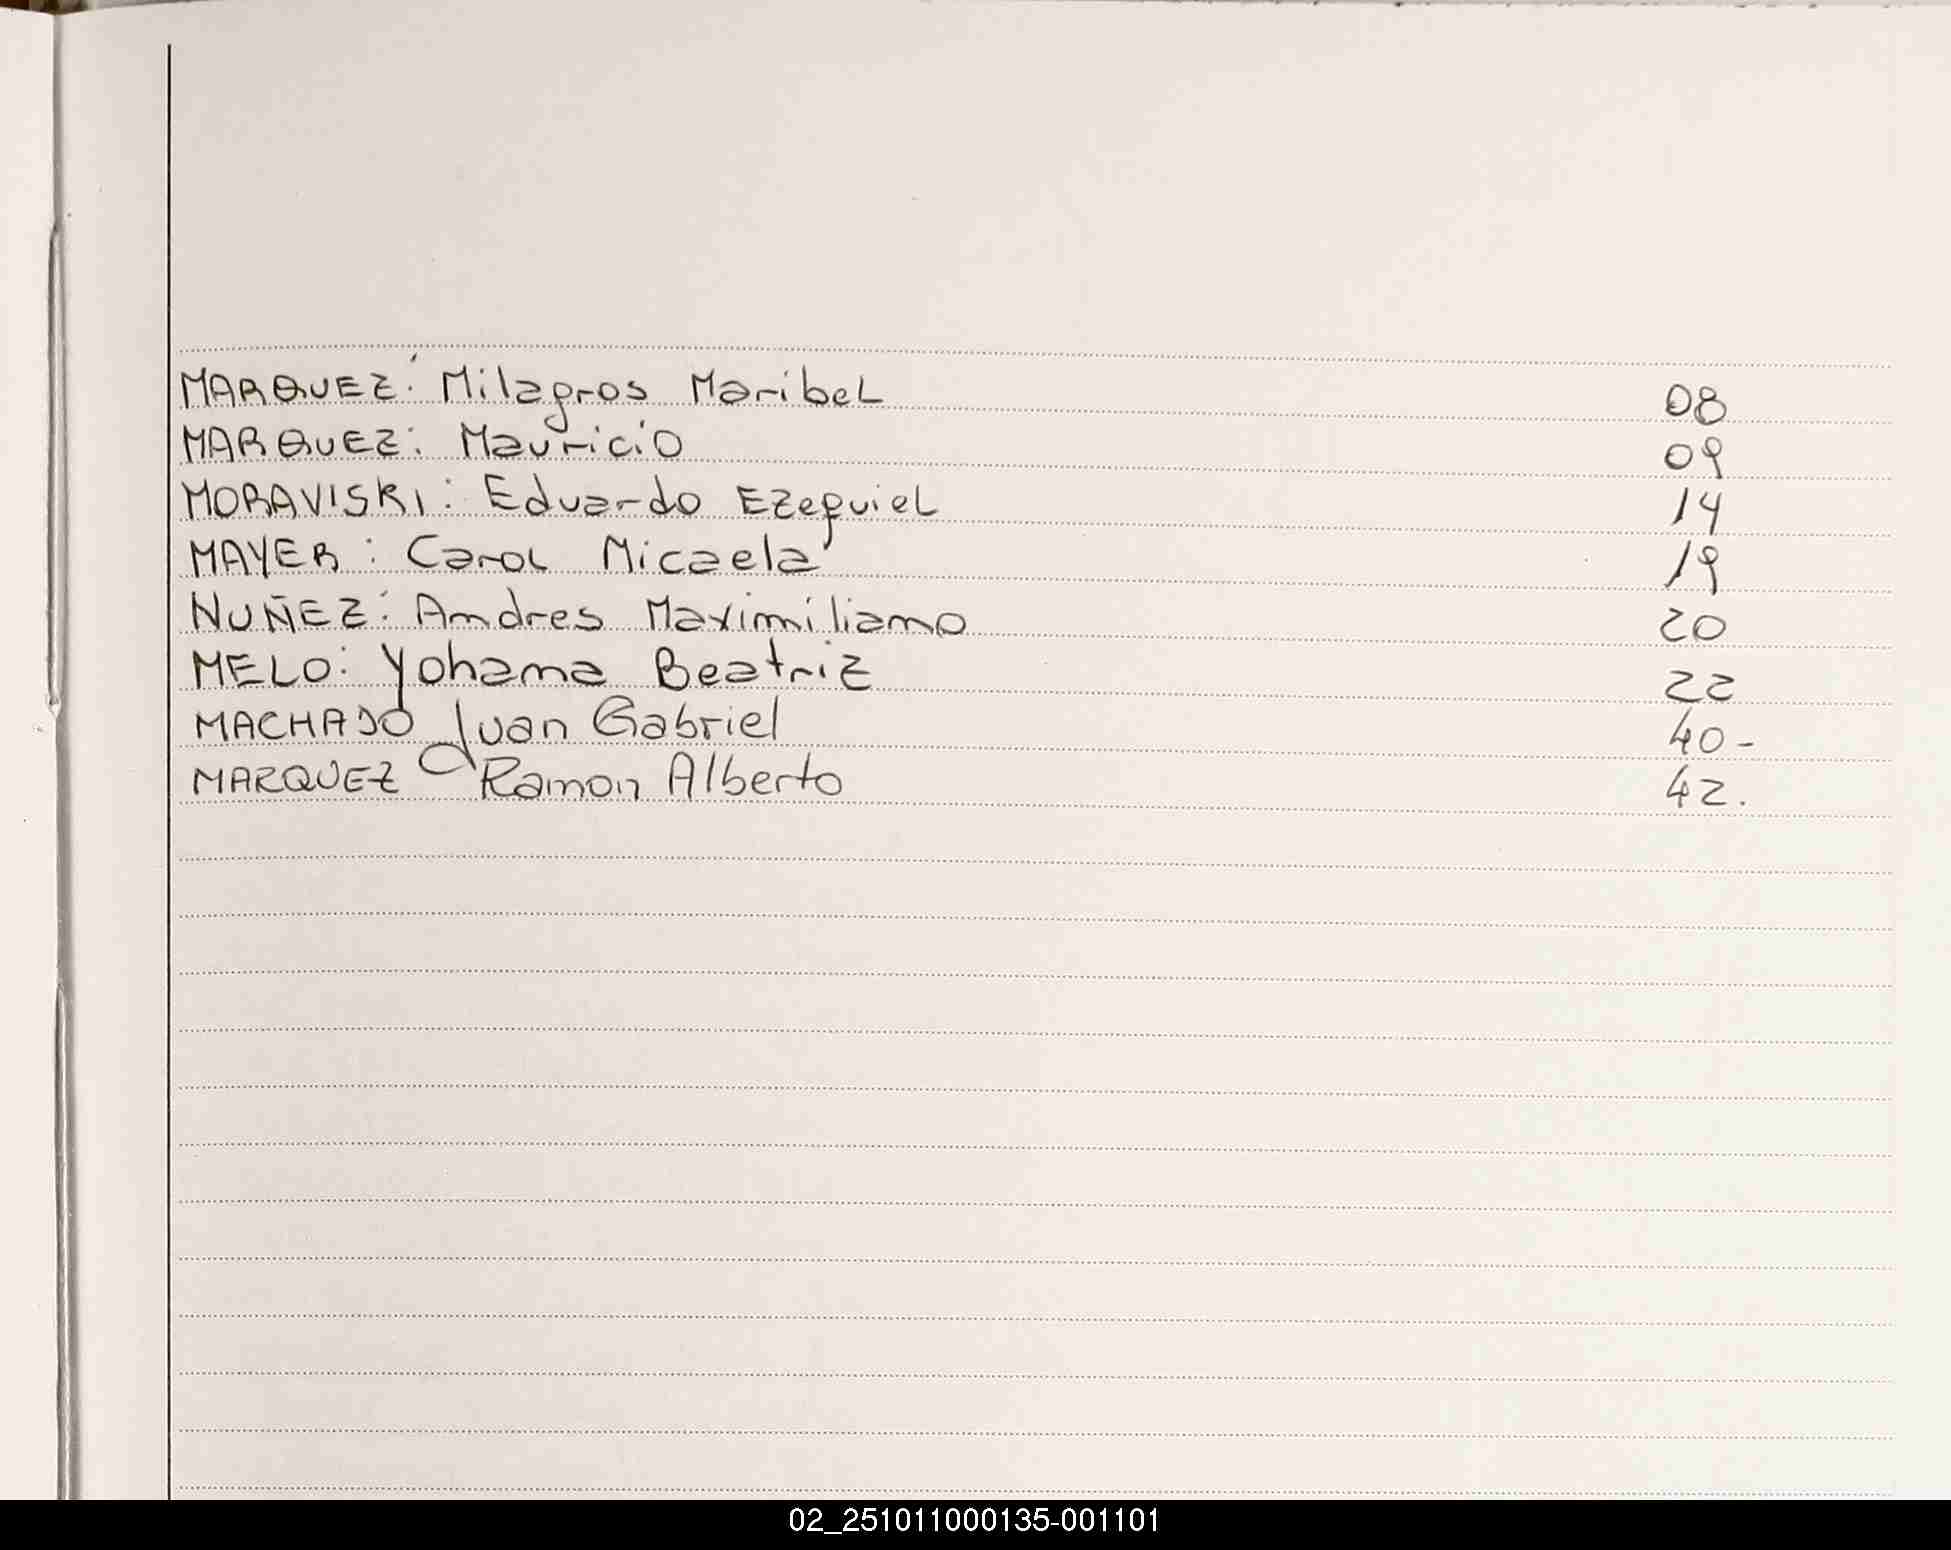 MARQUEZ: Milagros Maribel 08
MARQUEZ: Mauricio 09
MORAVISKI: Eduardo Ezequiel 14
MAYER: Carol Micaela 19
NUÑEZ: Andres Maximiliano 20
MELO: Yohana Beatriz 22
MACHADO Juan Gabriel 40-
MARQUEZ Ramon Alberto 42.
02_251011000135-001101